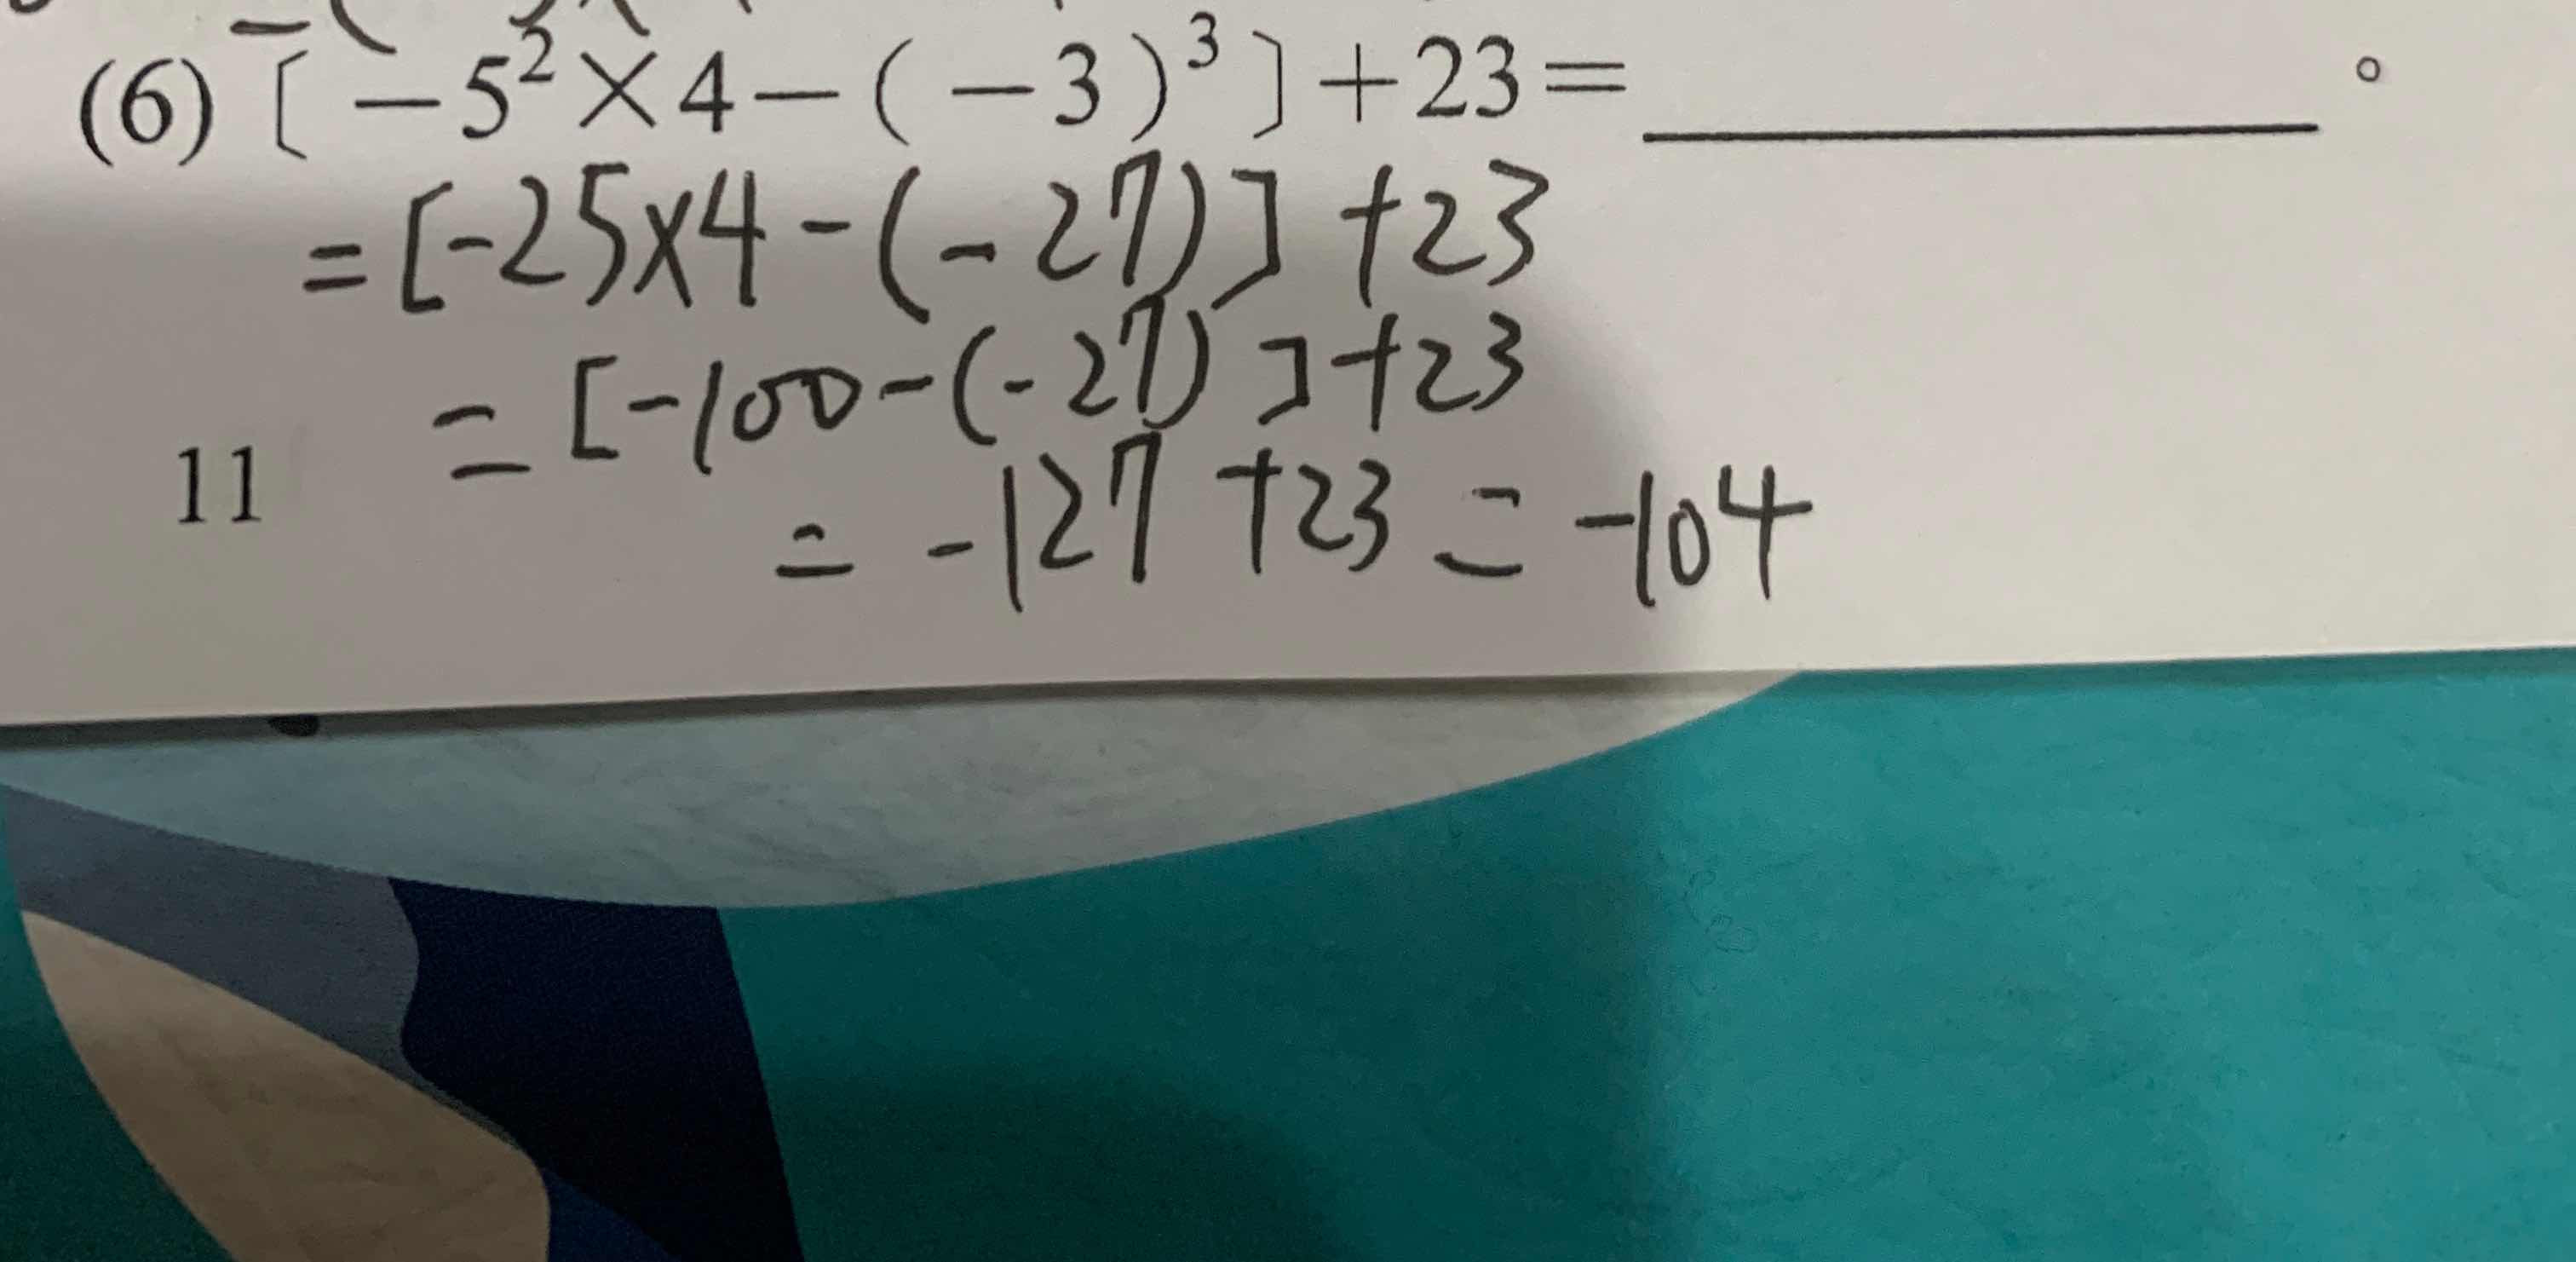 (6)〔－5²×4－(－3)³〕+23=________。
=[-25×4-(-27)]+23
=[-100-(-27)]+23
=-127+23=-104
11